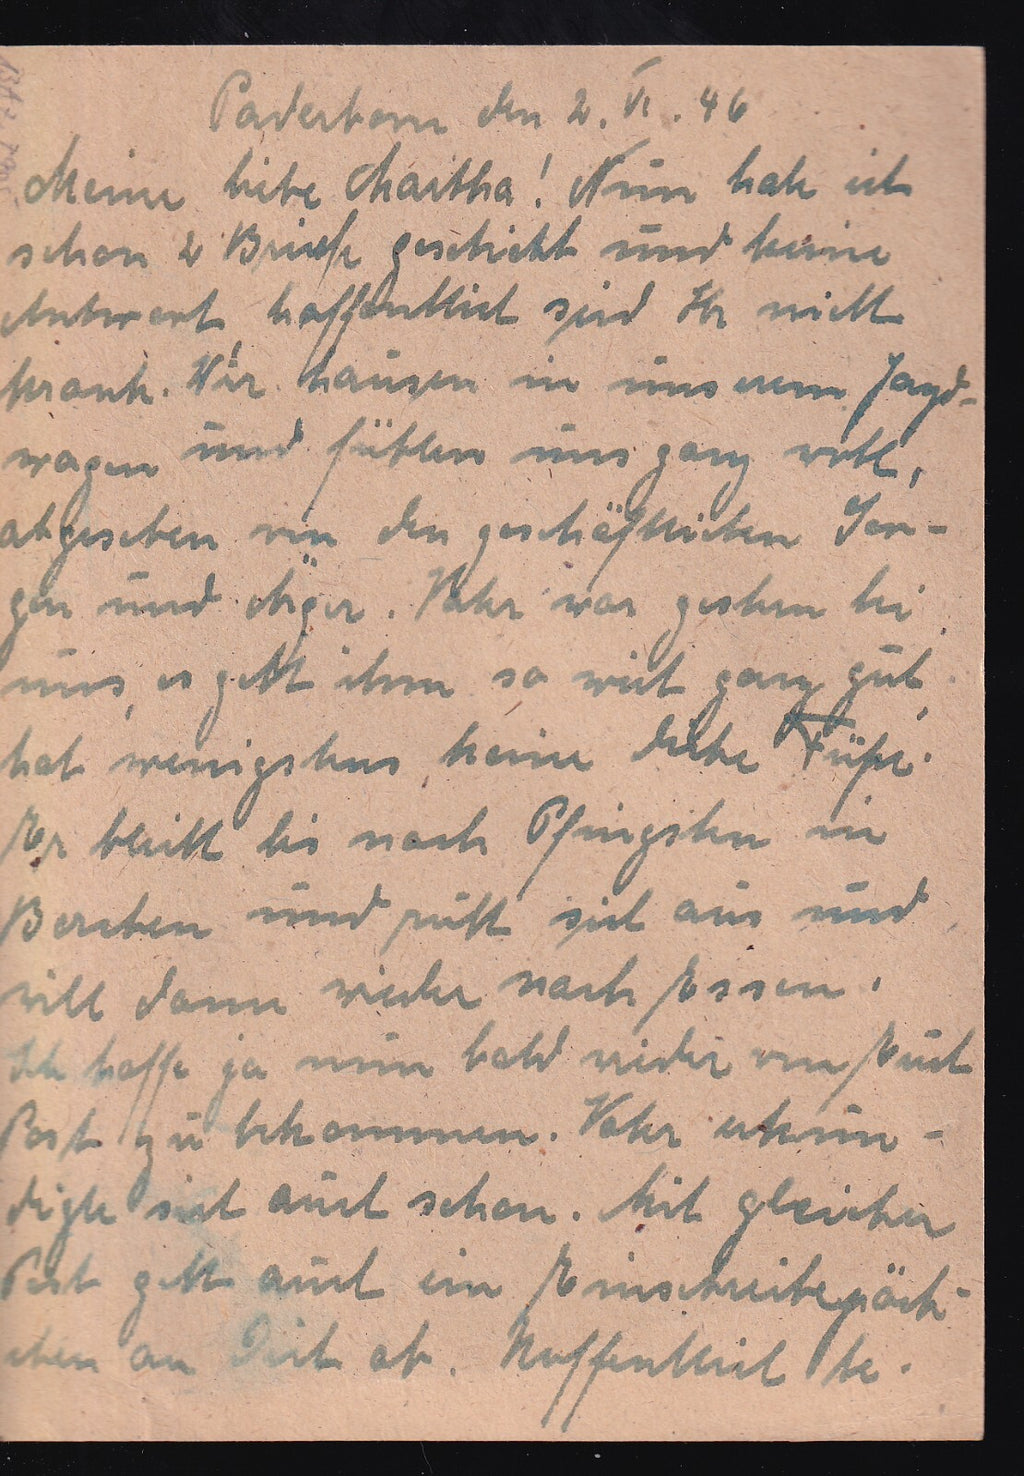 Paderborn den 2. VI. 46
Meine liebe Martha! Nun hab ich
schon 2 Briefe geschickt und keine
Antwort hoffentlich sind Ihr nicht
krank. Wir hausen in unserem Jagd-
wagen und fühlen uns ganz wohl,
abgesehen von den geschäftlichen Sor-
gen und Äger. Vater war gestern bei
uns, es geht ihm so weit ganz gut,
hat wenigstens keine dicke Füße.
Er bleibt bis nach Pfingsten in
und ruht sich aus und
will dann wieder nach Essen.
Ich hoffe ja nun bald wieder von Euch
Post zu bekommen. Vater erkun-
digte sich auch schon. Mit gleicher
Post geht auch ein Einschreibepäck-
chen an Dich ab. Hoffentlich be-